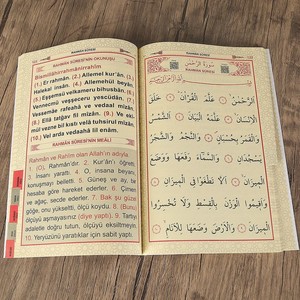 RAHMÂN SÛRESİ
RAHMÂN SÛRESİ'NİN OKUNUŞU
Bismillâhirrahmânirrahîm
(1.) Er rahmân. (2.) Allemel kur'ân. (3.)
Halekal insân. (4.) Allemehül beyân.
(5.) Eşşemsü velkameru bihusbân. (6.)
Vennecmü veşşeceru yescüdân. (7.)
Vessemâe rafeahâ ve vedaal mîzân.
(8.) Ellâ tatğav fil mîzân. (9.) Ve ekî-
mül vezne bil kıstı velâ tuhsirul mîzân.
(10.) Vel arda vedaahâ lil enâm.
RAHMÂN SÛRESİ'NİN MEÂLİ
Rahmân ve Rahîm olan Allah'ın adıyla
1. (O), Rahmân'dır. 2. Kur'ân'ı öğretti.
3. İnsanı yarattı. 4. O, insana beyanı,
konuşmayı belletti. 5. Güneş ve ay, bir
hesaba göre hareket ederler. 6. Çimen
ve ağaç, secde ederler. 7. Bak şu güzel
göğe, onu yükseltti, ölçü koydu. 8. (Bunu)
ölçüyü aşmayasınız (diye yaptı). 9. Tartıyı
adaletle doğru tutun, ölçüyü eksiltmeyin.
10. Yeryüzünü yaratıklar için sabit yaptı.
RAHMÂN SÛRESİ
سُورَةُ الرَّحْمٰنِ
اَلرَّحْمٰنُ ۞ عَلَّمَ الْقُرْاٰنَ ۞ خَلَقَ
الْاِنْسَانَ ۞ عَلَّمَهُ الْبَيَانَ ۞ اَلشَّمْسُ
وَالْقَمَرُ بِحُسْبَانٍ ۞ وَالنَّجْمُ وَالشَّجَرُ
يَسْجُدَانِ ۞ وَالسَّمَاءَ رَفَعَهَا وَوَضَعَ
الْمِيزَانَ ۞ اَلَّا تَطْغَوْا فِي الْمِيزَانِ
وَاَقِيمُوا الْوَزْنَ بِالْقِسْطِ وَلَا تُخْسِرُوا
الْمِيزَانَ ۞ وَالْاَرْضَ وَضَعَهَا لِلْاَنَامِ